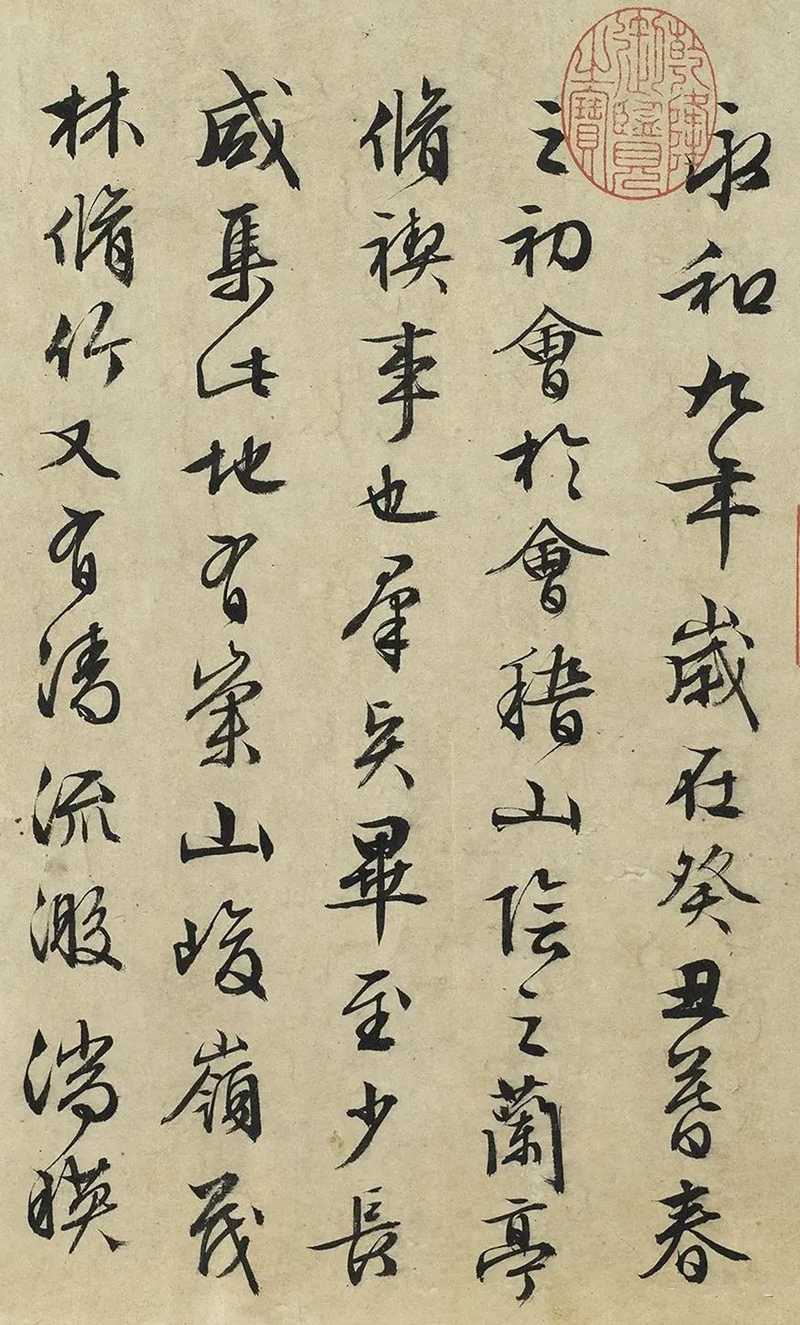 永和九年歲在癸丑暮春
之初會於會稽山陰之蘭亭
脩禊事也羣賢畢至少長
咸集此地有崇山峻嶺茂
林脩竹又有清流激湍暎
乾隆御覽之寶